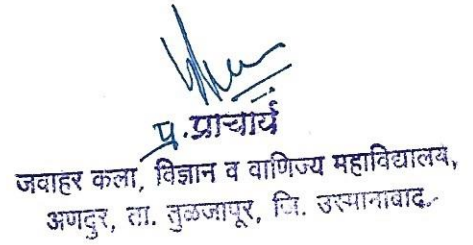 प्र.प्राचार्य
जवाहर कला, विज्ञान व वाणिज्य महाविद्यालय,
अणदुर, ता. तुळजापूर, जि. उस्मानाबाद.